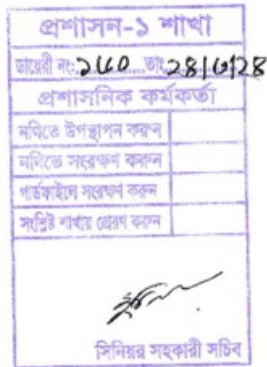 প্রশাসন-১ শাখা
ডায়েরী নং: ১৫০ তাং ২৪|৩|২৪
প্রশাসনিক কর্মকর্তা
নথিতে উপস্থাপন করুন
নথিতে সংরক্ষণ করুন
গার্ডফাইলে সংরক্ষণ করুন
সংশ্লিষ্ট শাখায় প্রেরণ করুন
সিনিয়র সহকারী সচিব